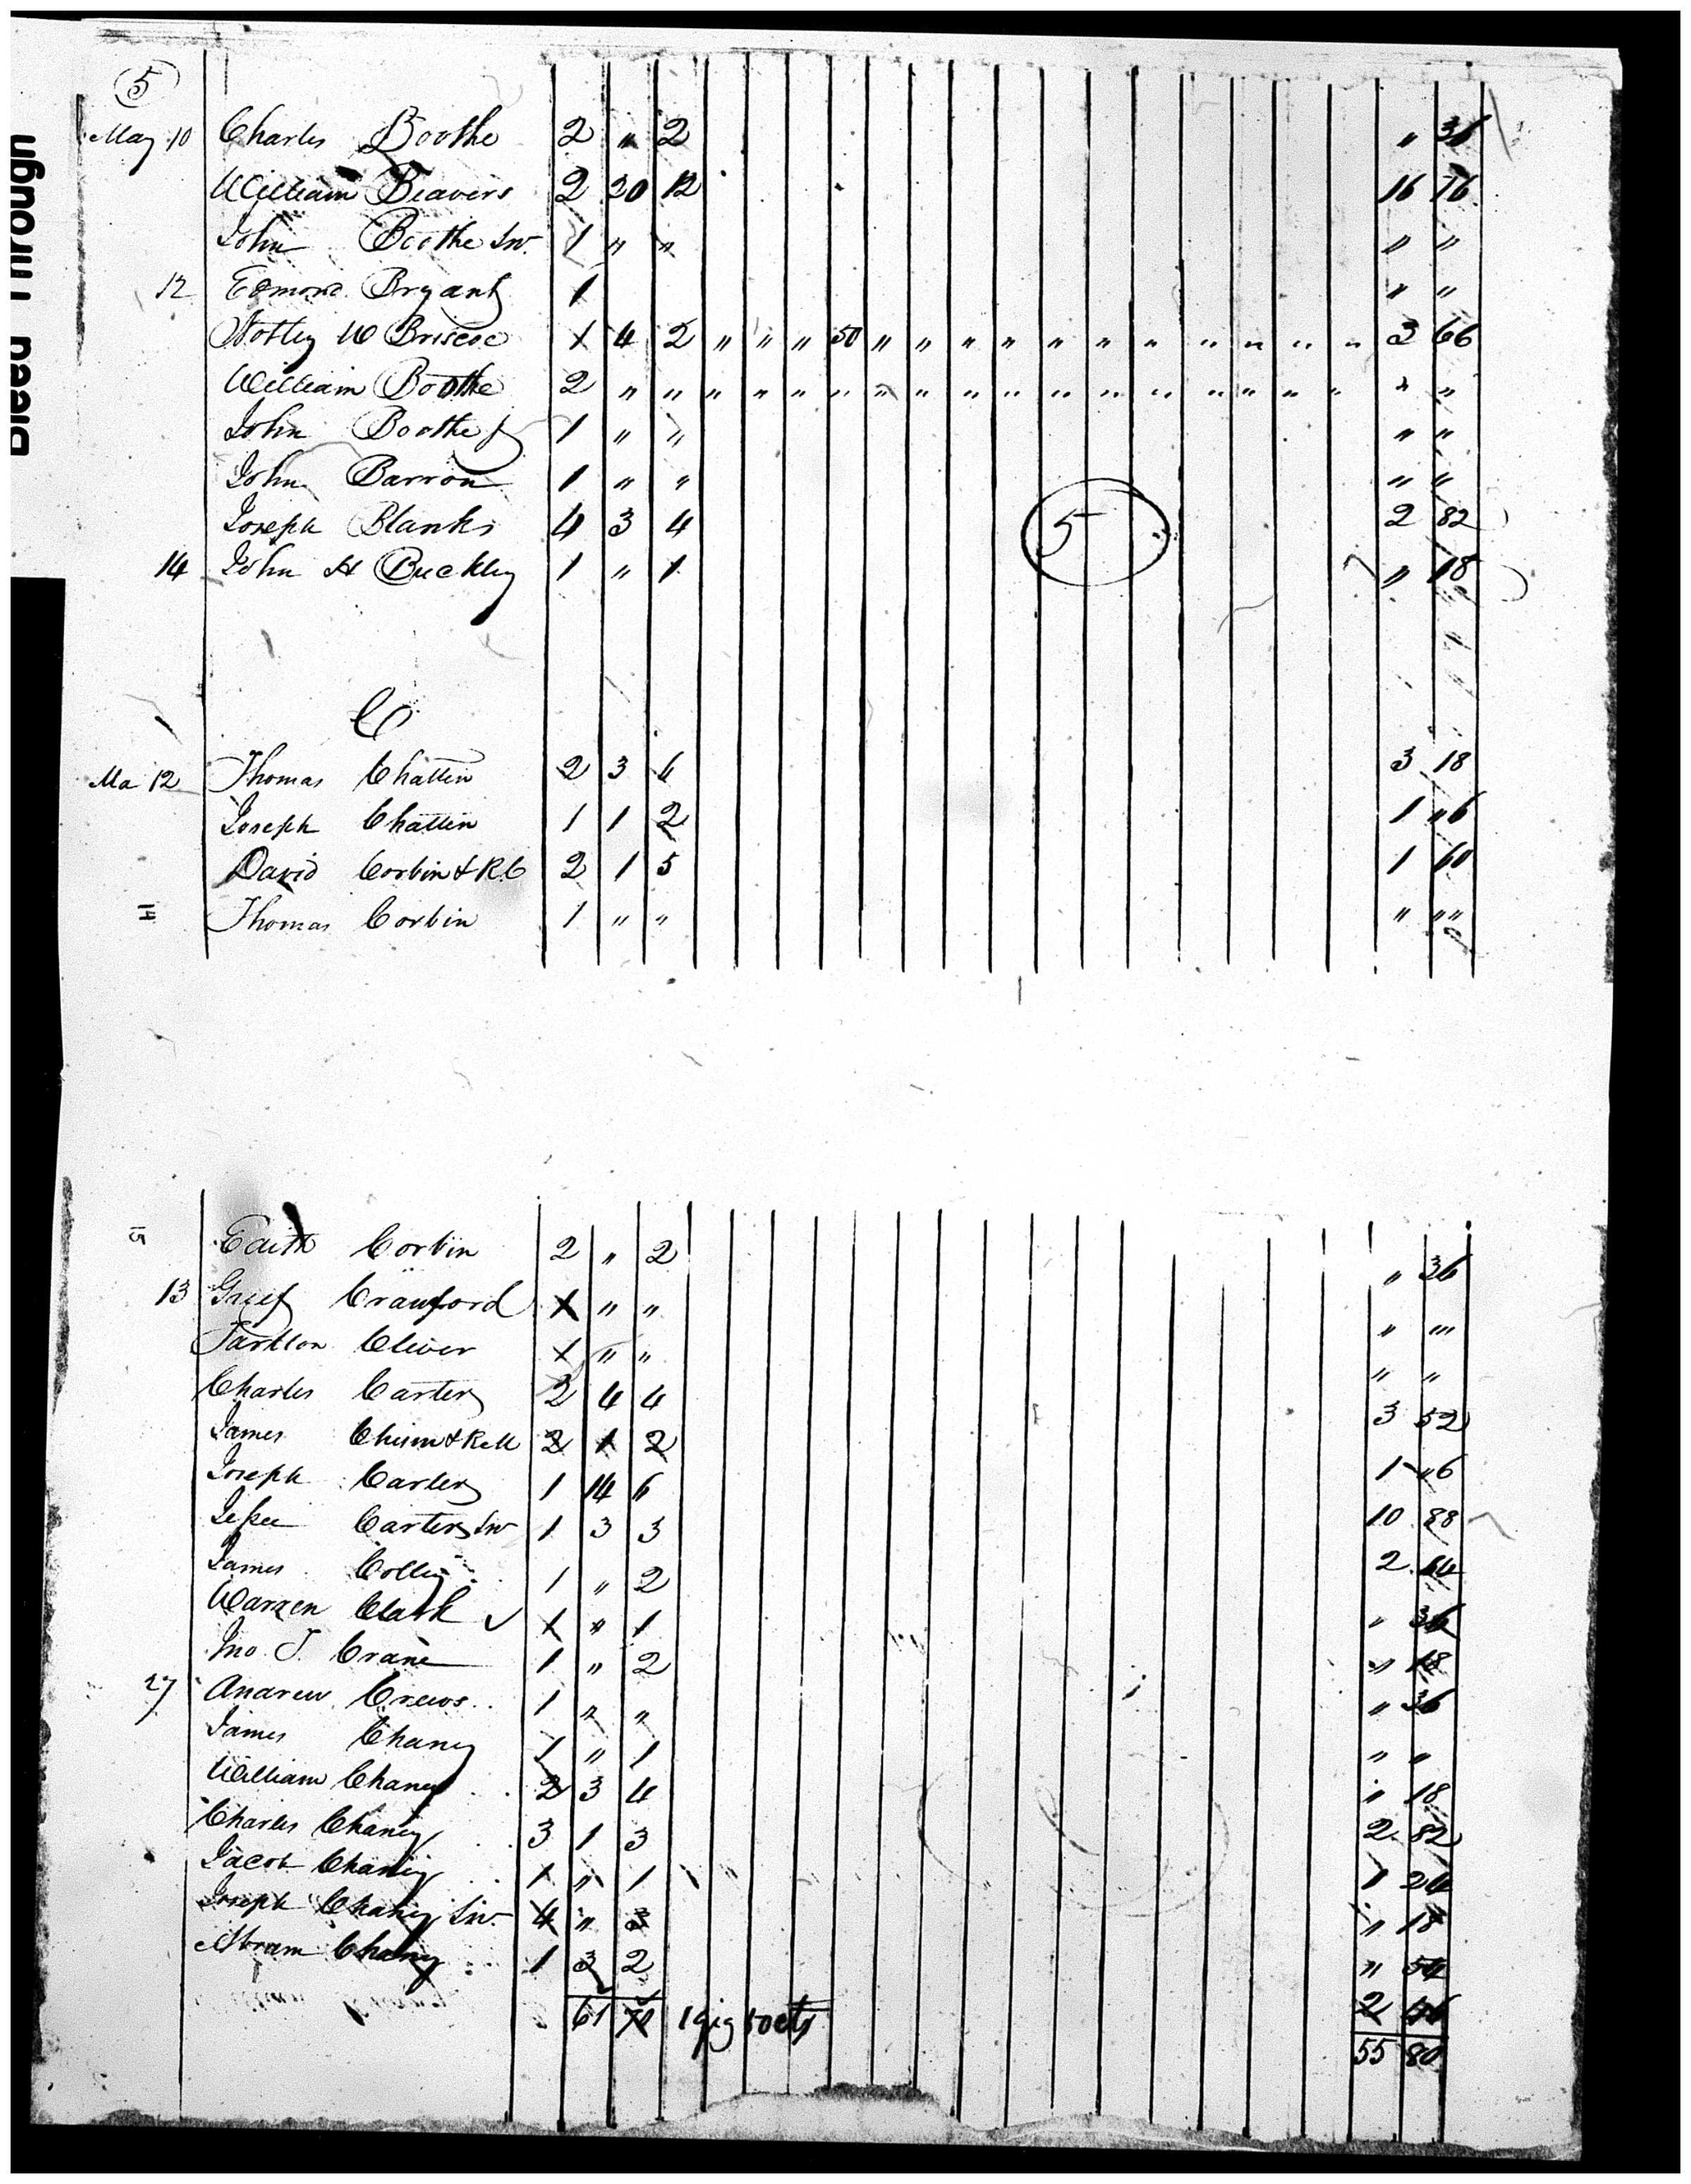 5
May 10 Charles Boothe 2 " 2 " 36
William Beavers 2 20 12 16 76
John Boothe Snr. 1 " " " "
12 Edmond Bryant 1 " "
Notley W Briscoe 1 4 2 " " " 50 " " " " " " " " " " " 3 66
William Boothe 2 " " " " " " " " " " " " " " " " " " "
John Boothe Jr 1 " " " "
John Barron 1 " " " "
Joseph Blanks 4 3 4 2 82
5
14 John H Buckley 1 " 1 " 18
C
Ma 12 Thomas Chattin 2 3 6 3 18
Joseph Chattin 1 1 2 1 "6
David Corbin & R.C 2 1 5 1 60
14 Thomas Corbin 1 " " " " "
15 Edith Corbin 2 " 2 " 36
13 Greef Crawford 1 " " " "
Tarlton Cliver 1 " " " "
Charles Carter 2 4 4 3 52
James Chism & R M 2 1 2 1 "6
Joseph Carter 1 14 6 10 88
Jessee Carter Snr 1 3 3 2 64
James Colley 1 " 2 " 36
Warren Clark 1 " 1 " 18
Jno. T. Crane 1 " 2 " 36
27 Andrew Crews 1 " " " "
James Chaney 1 " 1 " 18
William Chaney 2 3 4 2 82
Charles Chaney 3 1 3 1 24
Jacob Chaney 1 " 1 " 18
Joseph Chaney Snr. 4 " 3 " 54
Abram Chaney 1 3 2 2 46
61 1 gig 50 cts 55 80
Deed Through